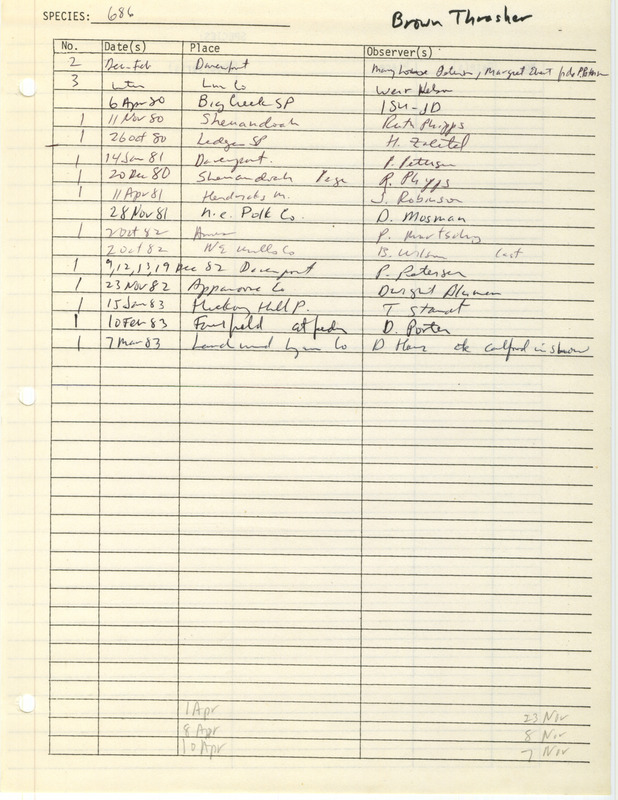 SPECIES: 686 Brown Thrasher
No. Date(s) Place Observer(s)
2 Dec-Feb Davenport Mary Louise Petersen, Margaret
3 Co Weir Nelson
6 Apr 80 Big Creek SP ISU-JD
1 11 Nov 80 Shenandoah Ruth Phipps
1 26 Oct 80 Ledges SP H. Zaletel
1 14 Jan 81 Davenport. P. Petersen
1 20 Dec 80 Shenandoah Page R. Phipps
1 11 Apr 81 J. Robinson
28 Nov 81 n.e. Polk Co. D. Mosman
1 2 Oct 82 Ames P. Martsching
2 Oct 82 Mills Co B. Wilson last
1 9,12,13,19 Dec 82 Davenport P. Petersen
1 23 Nov 82 Appanoose Co Dwight
1 15 Jan 83 Hickory Hill P. T Staudt
1 10 Feb 83 Fairfield at feeder D. Porter
1 7 Mar 83 Co D in snow
1 Apr 23 Nov
8 Apr 8 Nov
10 Apr 7 Nov